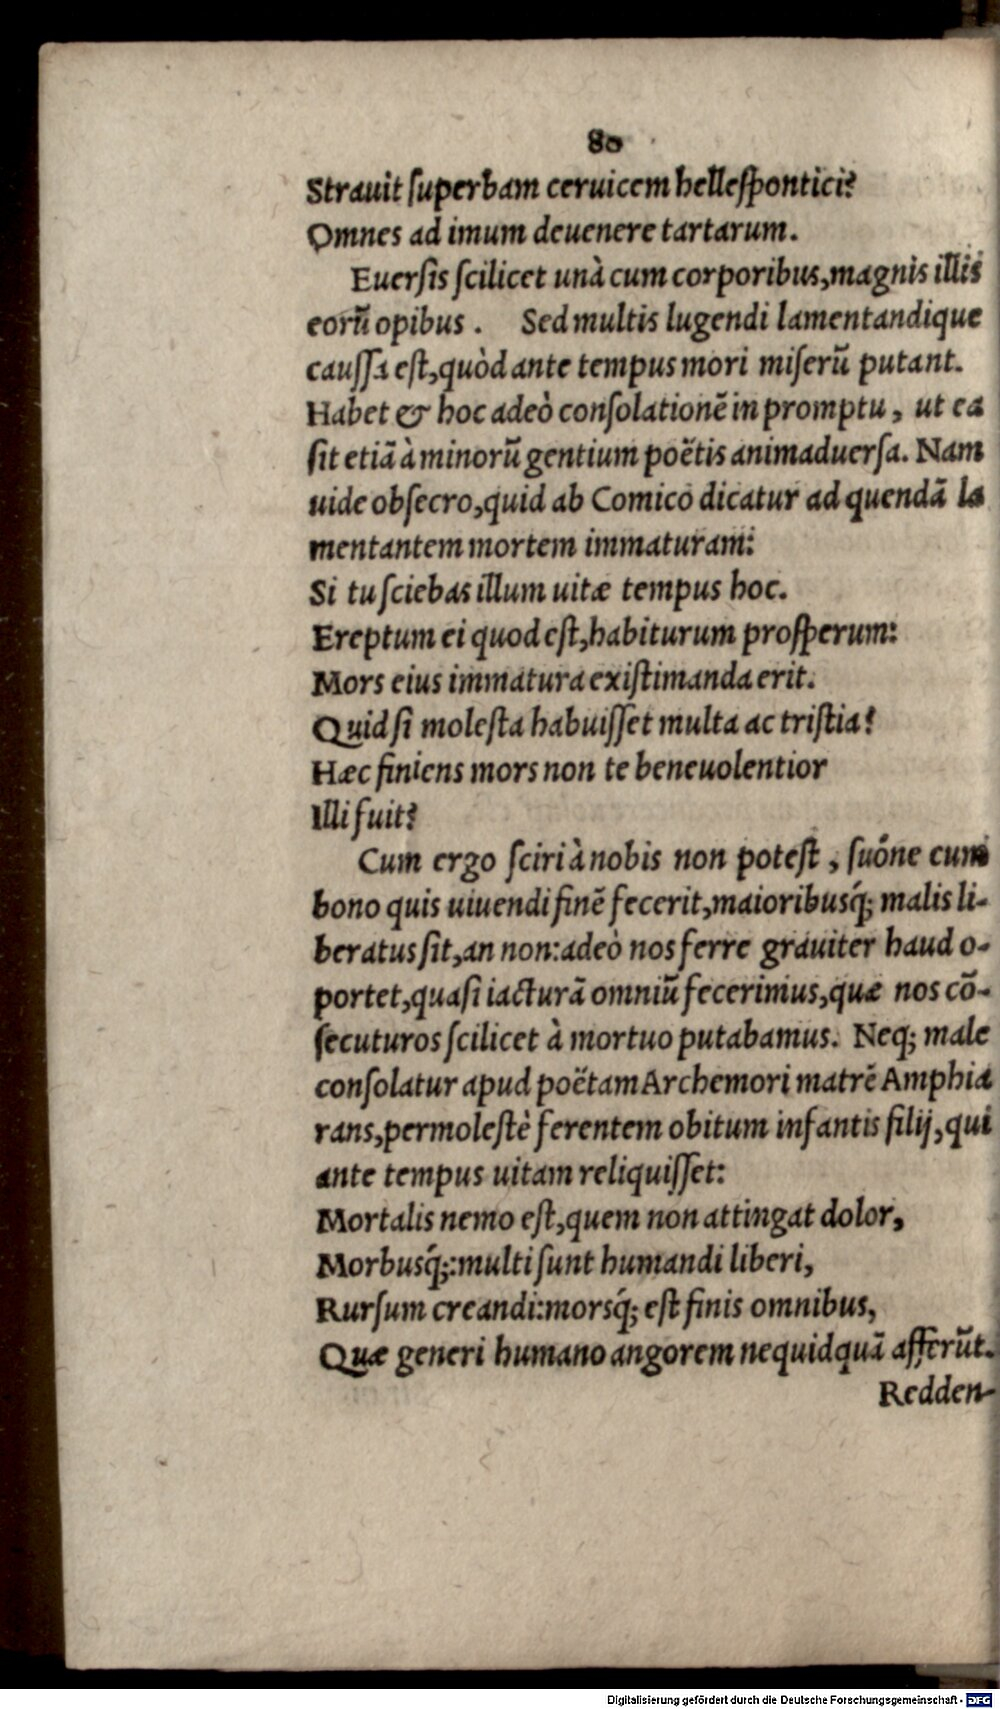 80
Strauit ſuperbam ceruicem helleſpontici?
Omnes ad imum deuenere tartarum.
Euerſis ſcilicet unà cum corporibus, magnis illis
eorũ opibus. Sed multis lugendi lamentandique
cauſſa eſt, quòd ante tempus mori miſerũ putant.
Habet & hoc adeò conſolationẽ in promptu, ut ea
ſit etiã à minorũ gentium poëtis animaduerſa. Nam
uide obſecro, quid ab Comico dicatur ad quendã la
mentantem mortem immaturam:
Si tu ſciebas illum uitæ tempus hoc.
Ereptum ei quod eſt, habiturum proſperum:
Mors eius immatura exiſtimanda erit.
Quid ſi moleſta habuiſſet multa ac triſtia?
Hæc finiens mors non te beneuolentior
Illi fuit?
Cum ergo ſciri à nobis non poteſt, ſuóne cum
bono quis uiuendi finẽ fecerit, maioribusq́; malis li-
beratus ſit, an non: adeò nos ferre grauiter haud o-
portet, quaſi iacturã omniũ fecerimus, quæ nos cõ-
ſecuturos ſcilicet à mortuo putabamus. Neq; male
conſolatur apud poëtam Archemori matrẽ Amphia
rans, permoleſtè ferentem obitum infantis filij, qui
ante tempus uitam reliquiſſet:
Mortalis nemo eſt, quem non attingat dolor,
Morbusq́;: multi ſunt humandi liberi,
Rurſum creandi: morsq́; eſt finis omnibus,
Quæ generi humano angorem nequidquã afferũt.
Redden-
Digitalisierung gefördert durch die Deutsche Forschungsgemeinschaft - DFG